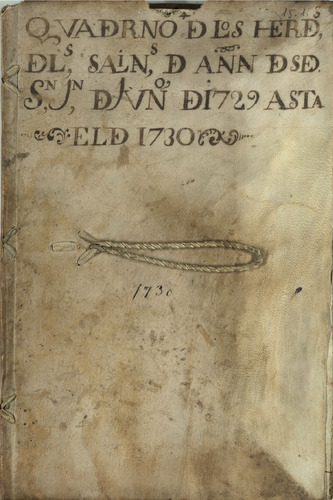 15.1.6
QVADRNO D LOS HERED,
DLS, SALNS, D AÑN DSD.
SN, JN, D JVNO D 1729 ASTA
EL D 1730
1730